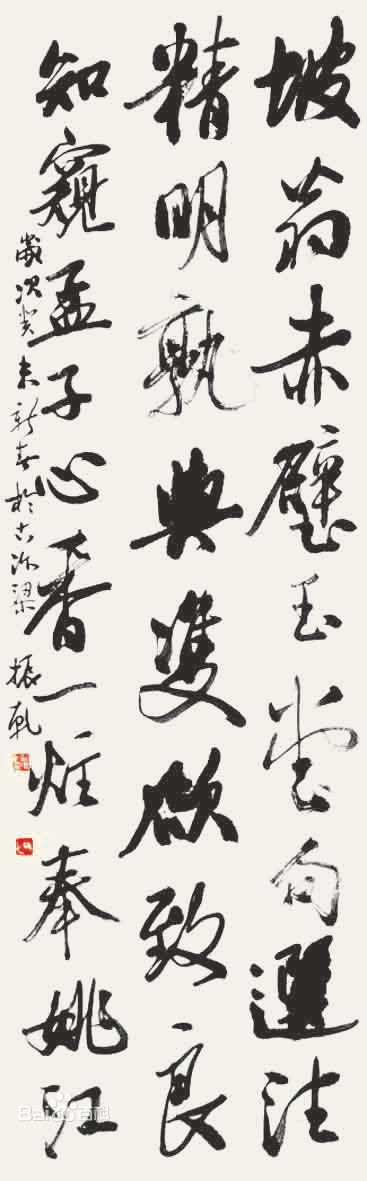 坡翁赤壁玉堂句選注
精明孰與雙欲致良
知窺孟子心香一炷奉姚江
歲次癸未新春於古汴梁 振乾
Baidu百科